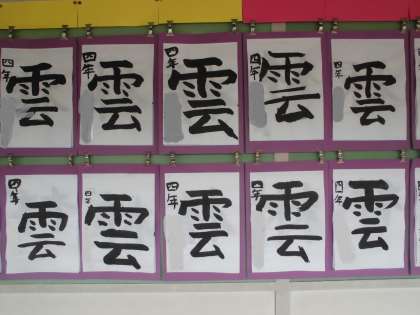 四年 雲
四年 雲
四年 雲
四年 雲
四年 雲
四年 雲
四年 雲
四年 雲
四年 雲
四年 雲